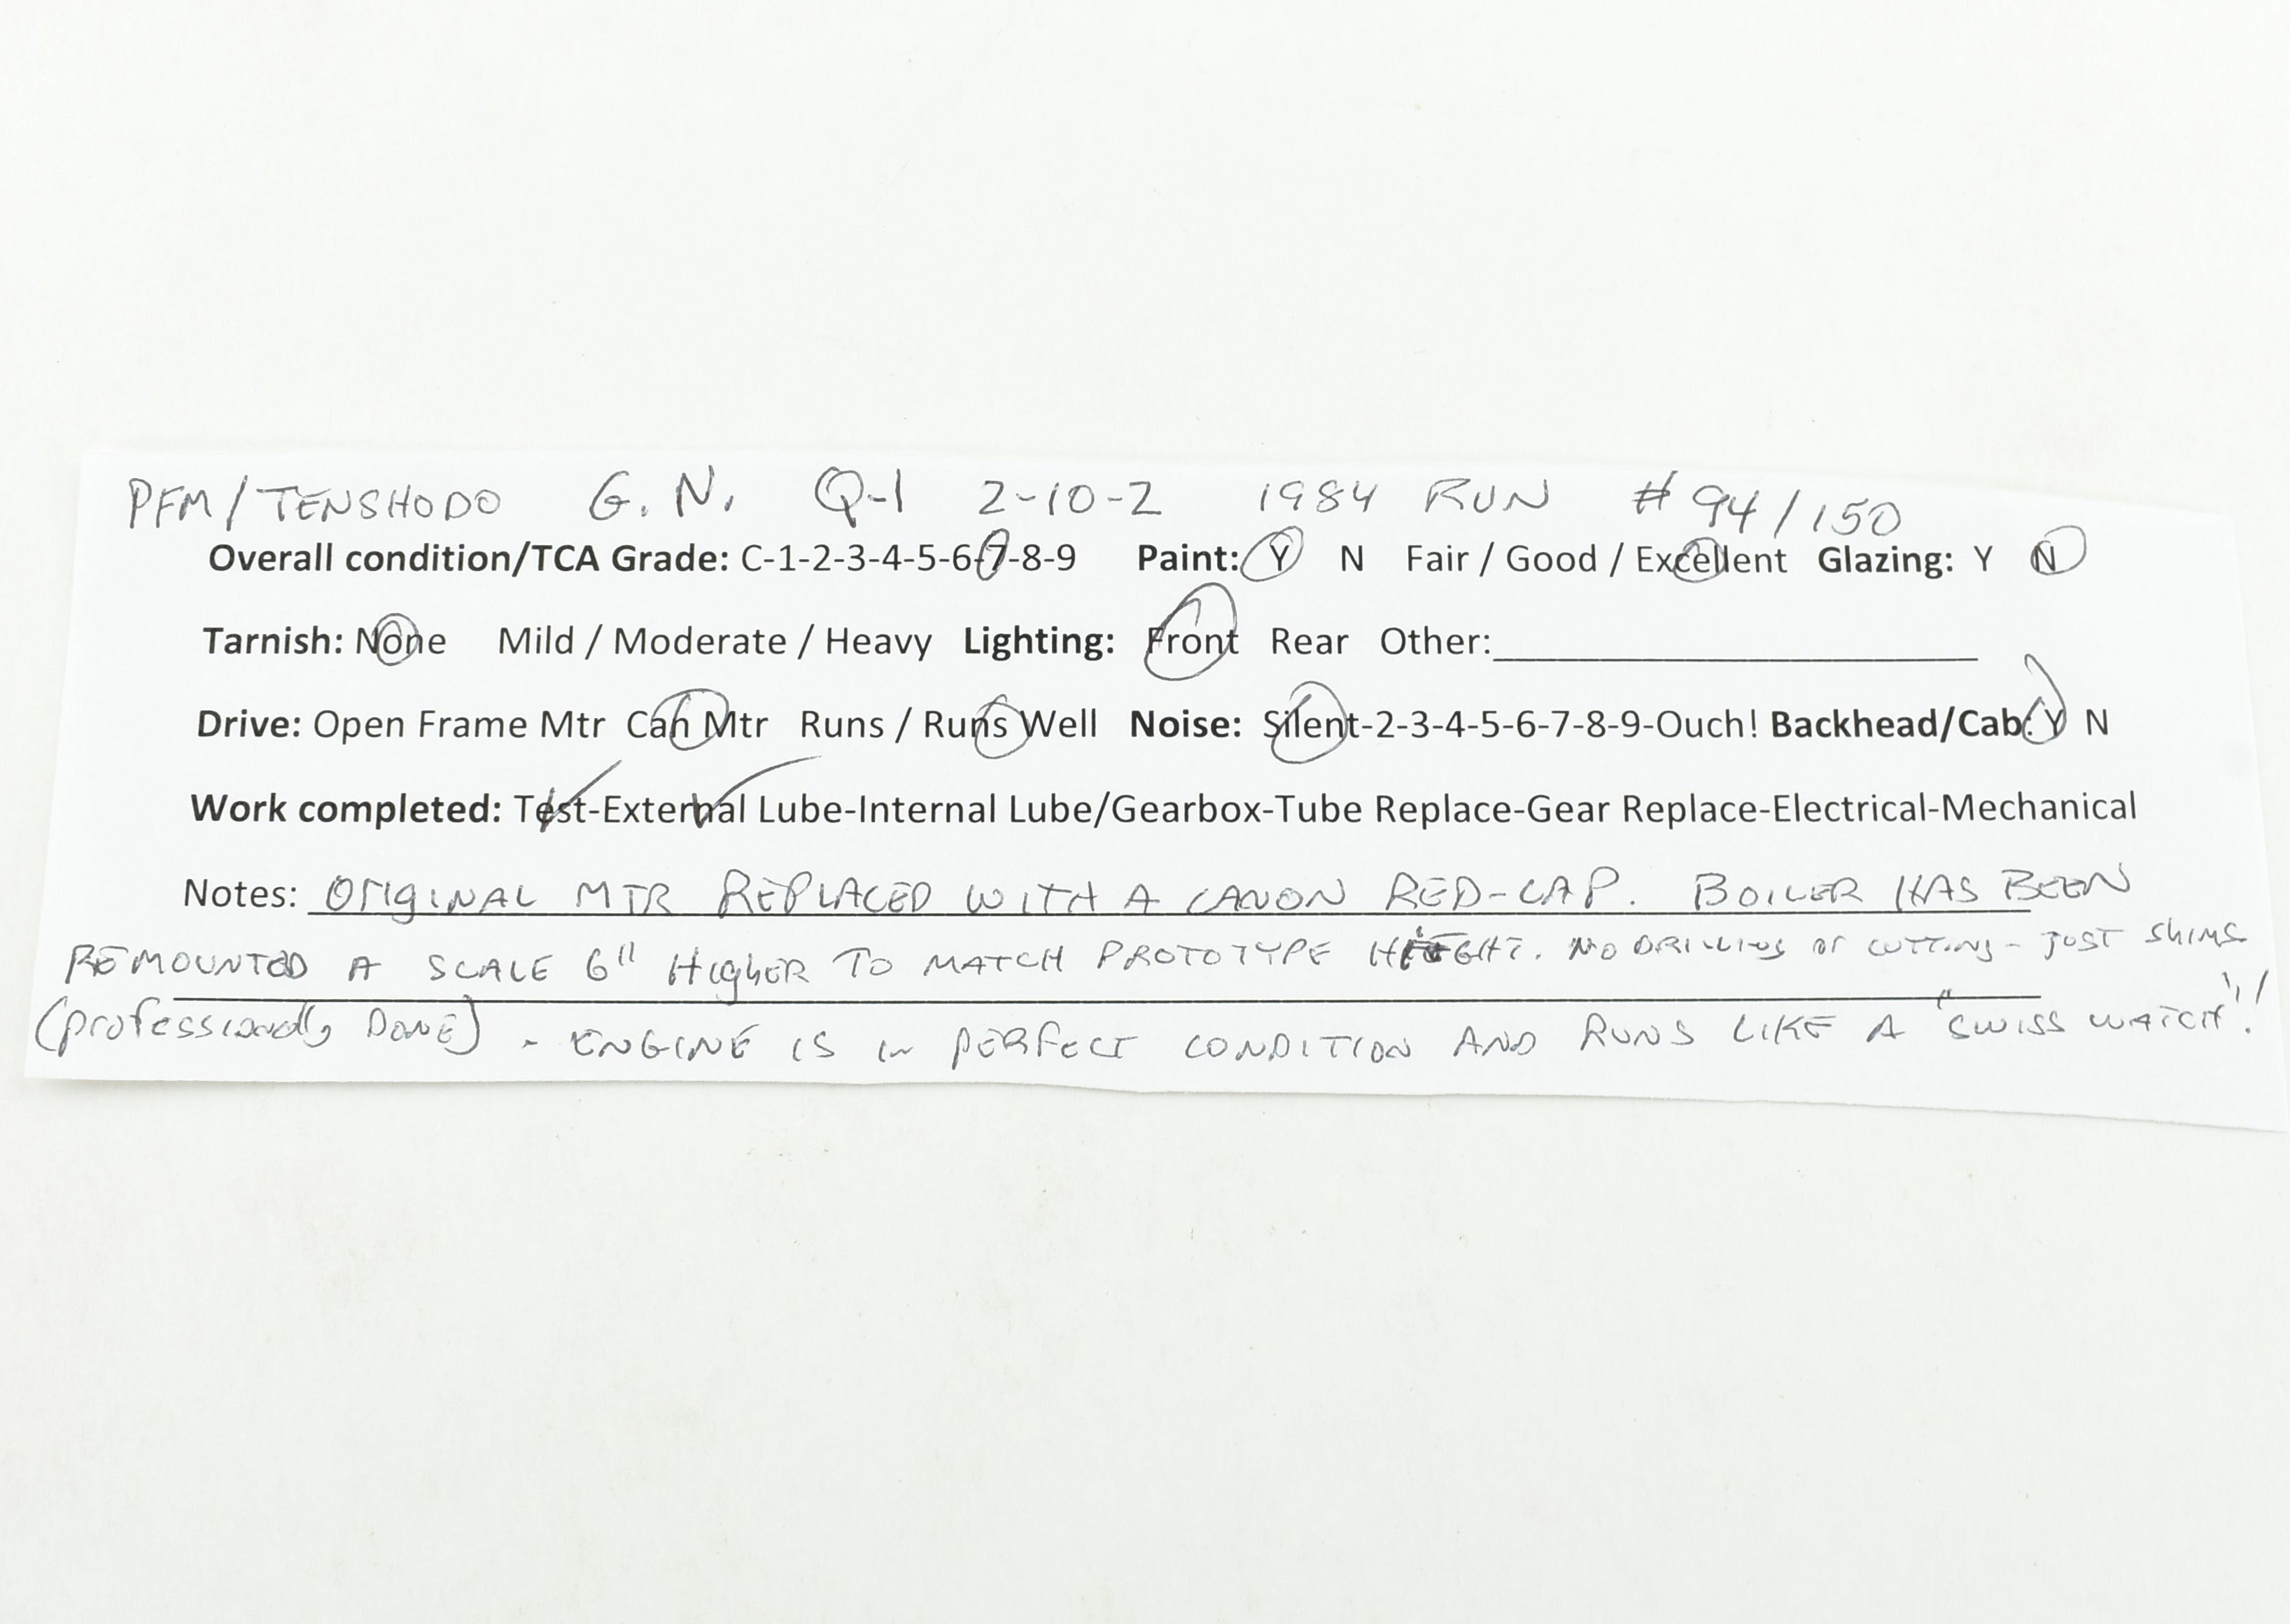 PFM/TENSHODO G.N. Q-1 2-10-2 1984 RUN #94/150
Overall condition/TCA Grade: C-1-2-3-4-5-6-7-8-9 Paint: Y N Fair / Good / Excellent Glazing: Y N
Tarnish: None Mild / Moderate / Heavy Lighting: Front Rear Other:
Drive: Open Frame Mtr Can Mtr Runs / Runs Well Noise: Silent-2-3-4-5-6-7-8-9-Ouch! Backhead/Cab: Y N
Work completed: Test-External Lube-Internal Lube/Gearbox-Tube Replace-Gear Replace-Electrical-Mechanical
Notes: ORIGINAL MTR REPLACED WITH A CANON RED-CAP. BOILER HAS BEEN
REMOUNTED A SCALE 6" HIGHER TO MATCH PROTOTYPE HEIGHT. NO DRILLING OR CUTTING - JUST SHIMS
(professionally DONE). ENGINE IS IN PERFECT CONDITION AND RUNS LIKE A "SWISS WATCH"!